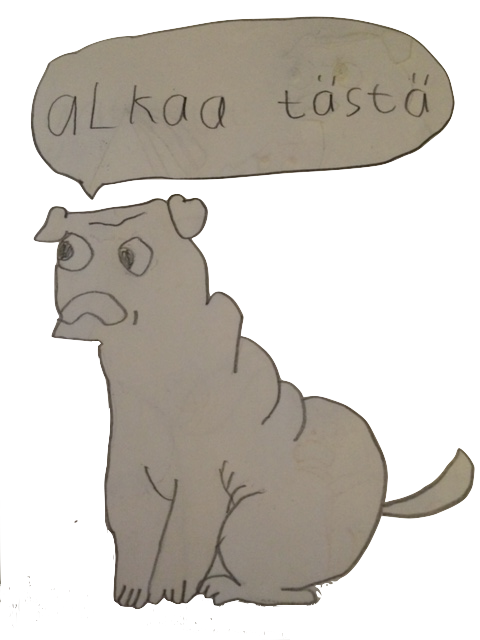 alkaa tästä